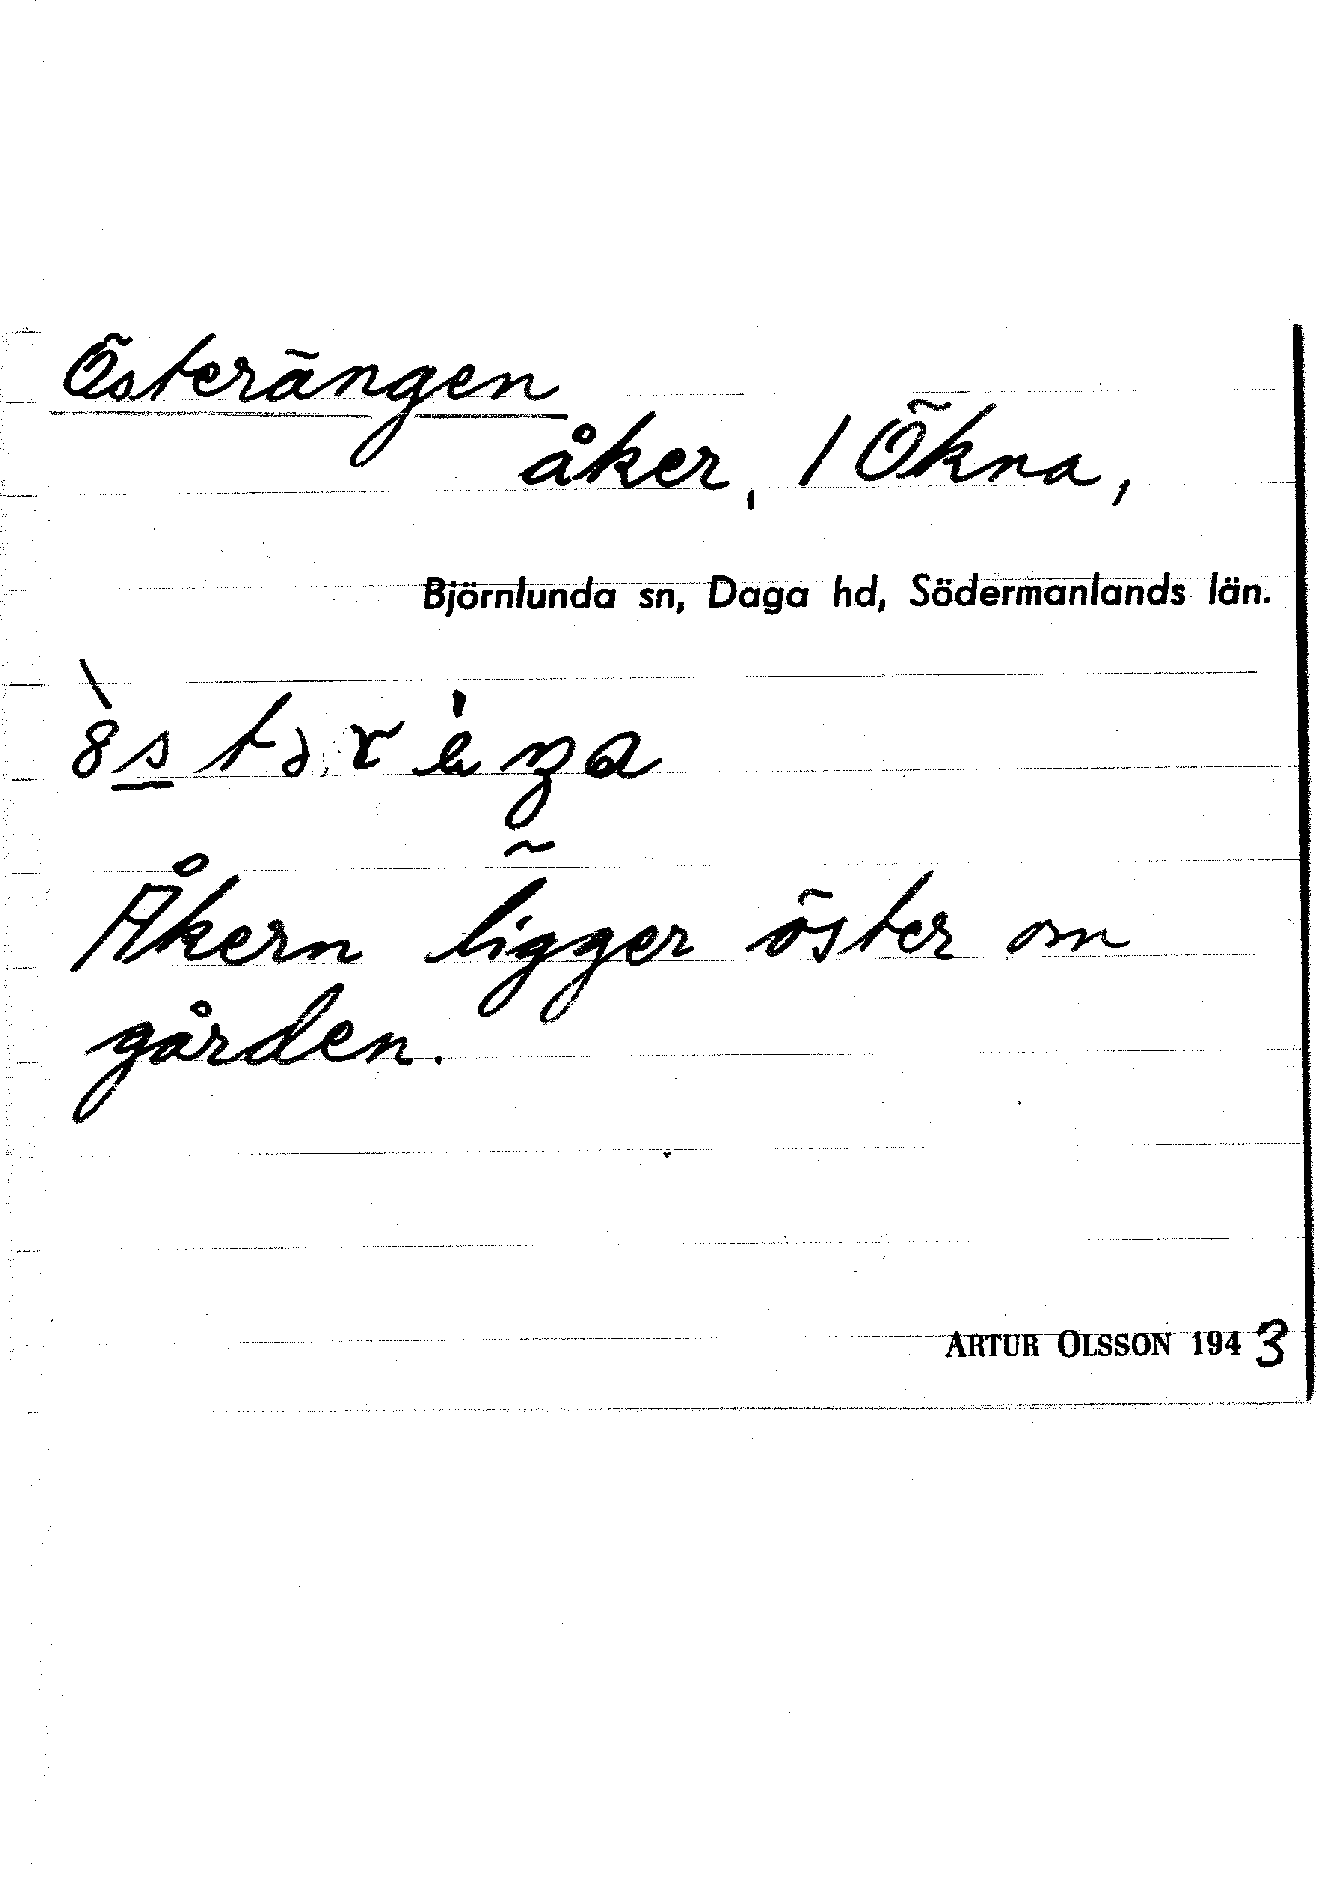 Österängen
åker, 1 Ökna,
Björnlunda sn, Daga hd, Södermanlands län.
Åkern ligger öster om
gården.
ARTUR OLSSON 1943